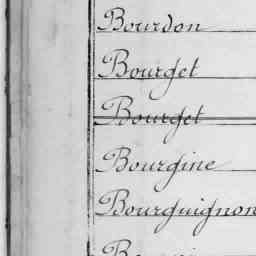 Bourdon
Bourget
Bourget
Bourgine
Bourguignon